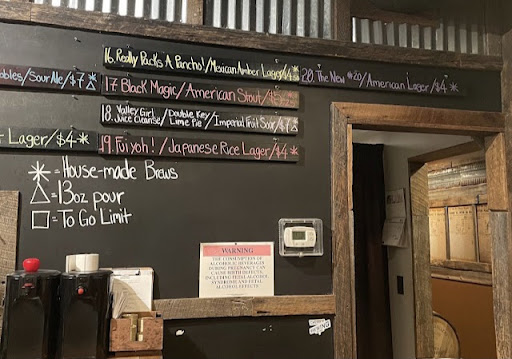 16. Really Packs A Pancho!/Mexican Amber Lager/$4*
bbles/Sour Ale/$7△*
17 Black Magic/American Stout/
20. The New #20/American Lager/$4*
18. Valley Girl Juice Cleanse/Double Key Lime Pie/Imperial Fruit Sour/$7△
Lager/$4*
19. Fuiyoh!/Japanese Rice Lager/$4*
* = House-made Brews
△ = 13oz pour
□ = To Go Limit
WARNING
THE CONSUMPTION OF
ALCOHOLIC BEVERAGES
DURING PREGNANCY CAN
CAUSE BIRTH DEFECTS,
INCLUDING FETAL ALCOHOL
SYNDROME AND FETAL
ALCOHOL EFFECTS